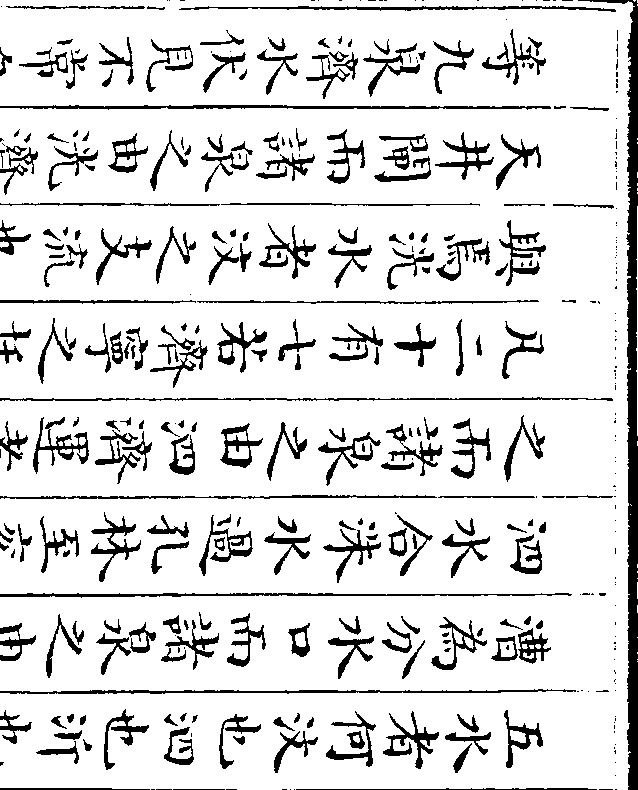 五水者何汶也泗也沂也
漕為分水口而諸泉之由
泗水合洙水過孔林至兗
之而諸泉之由泗濟運者
凡二十有七若濟寧之
與焉洸水者汶之支流也
天井閘而諸泉之由洸濟
等九泉濟水伏見不常